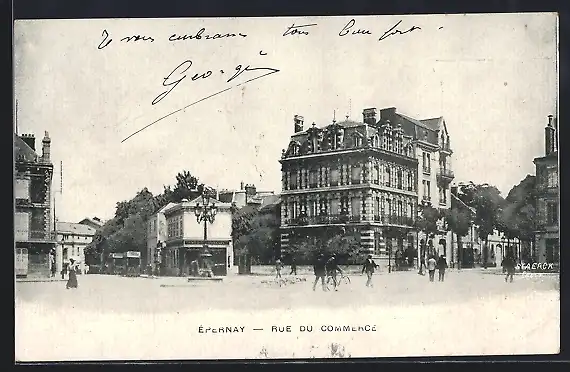 Je vous embrasse tous bien fort.
Georges
STAERCK
ÉPERNAY — RUE DU COMMERCE